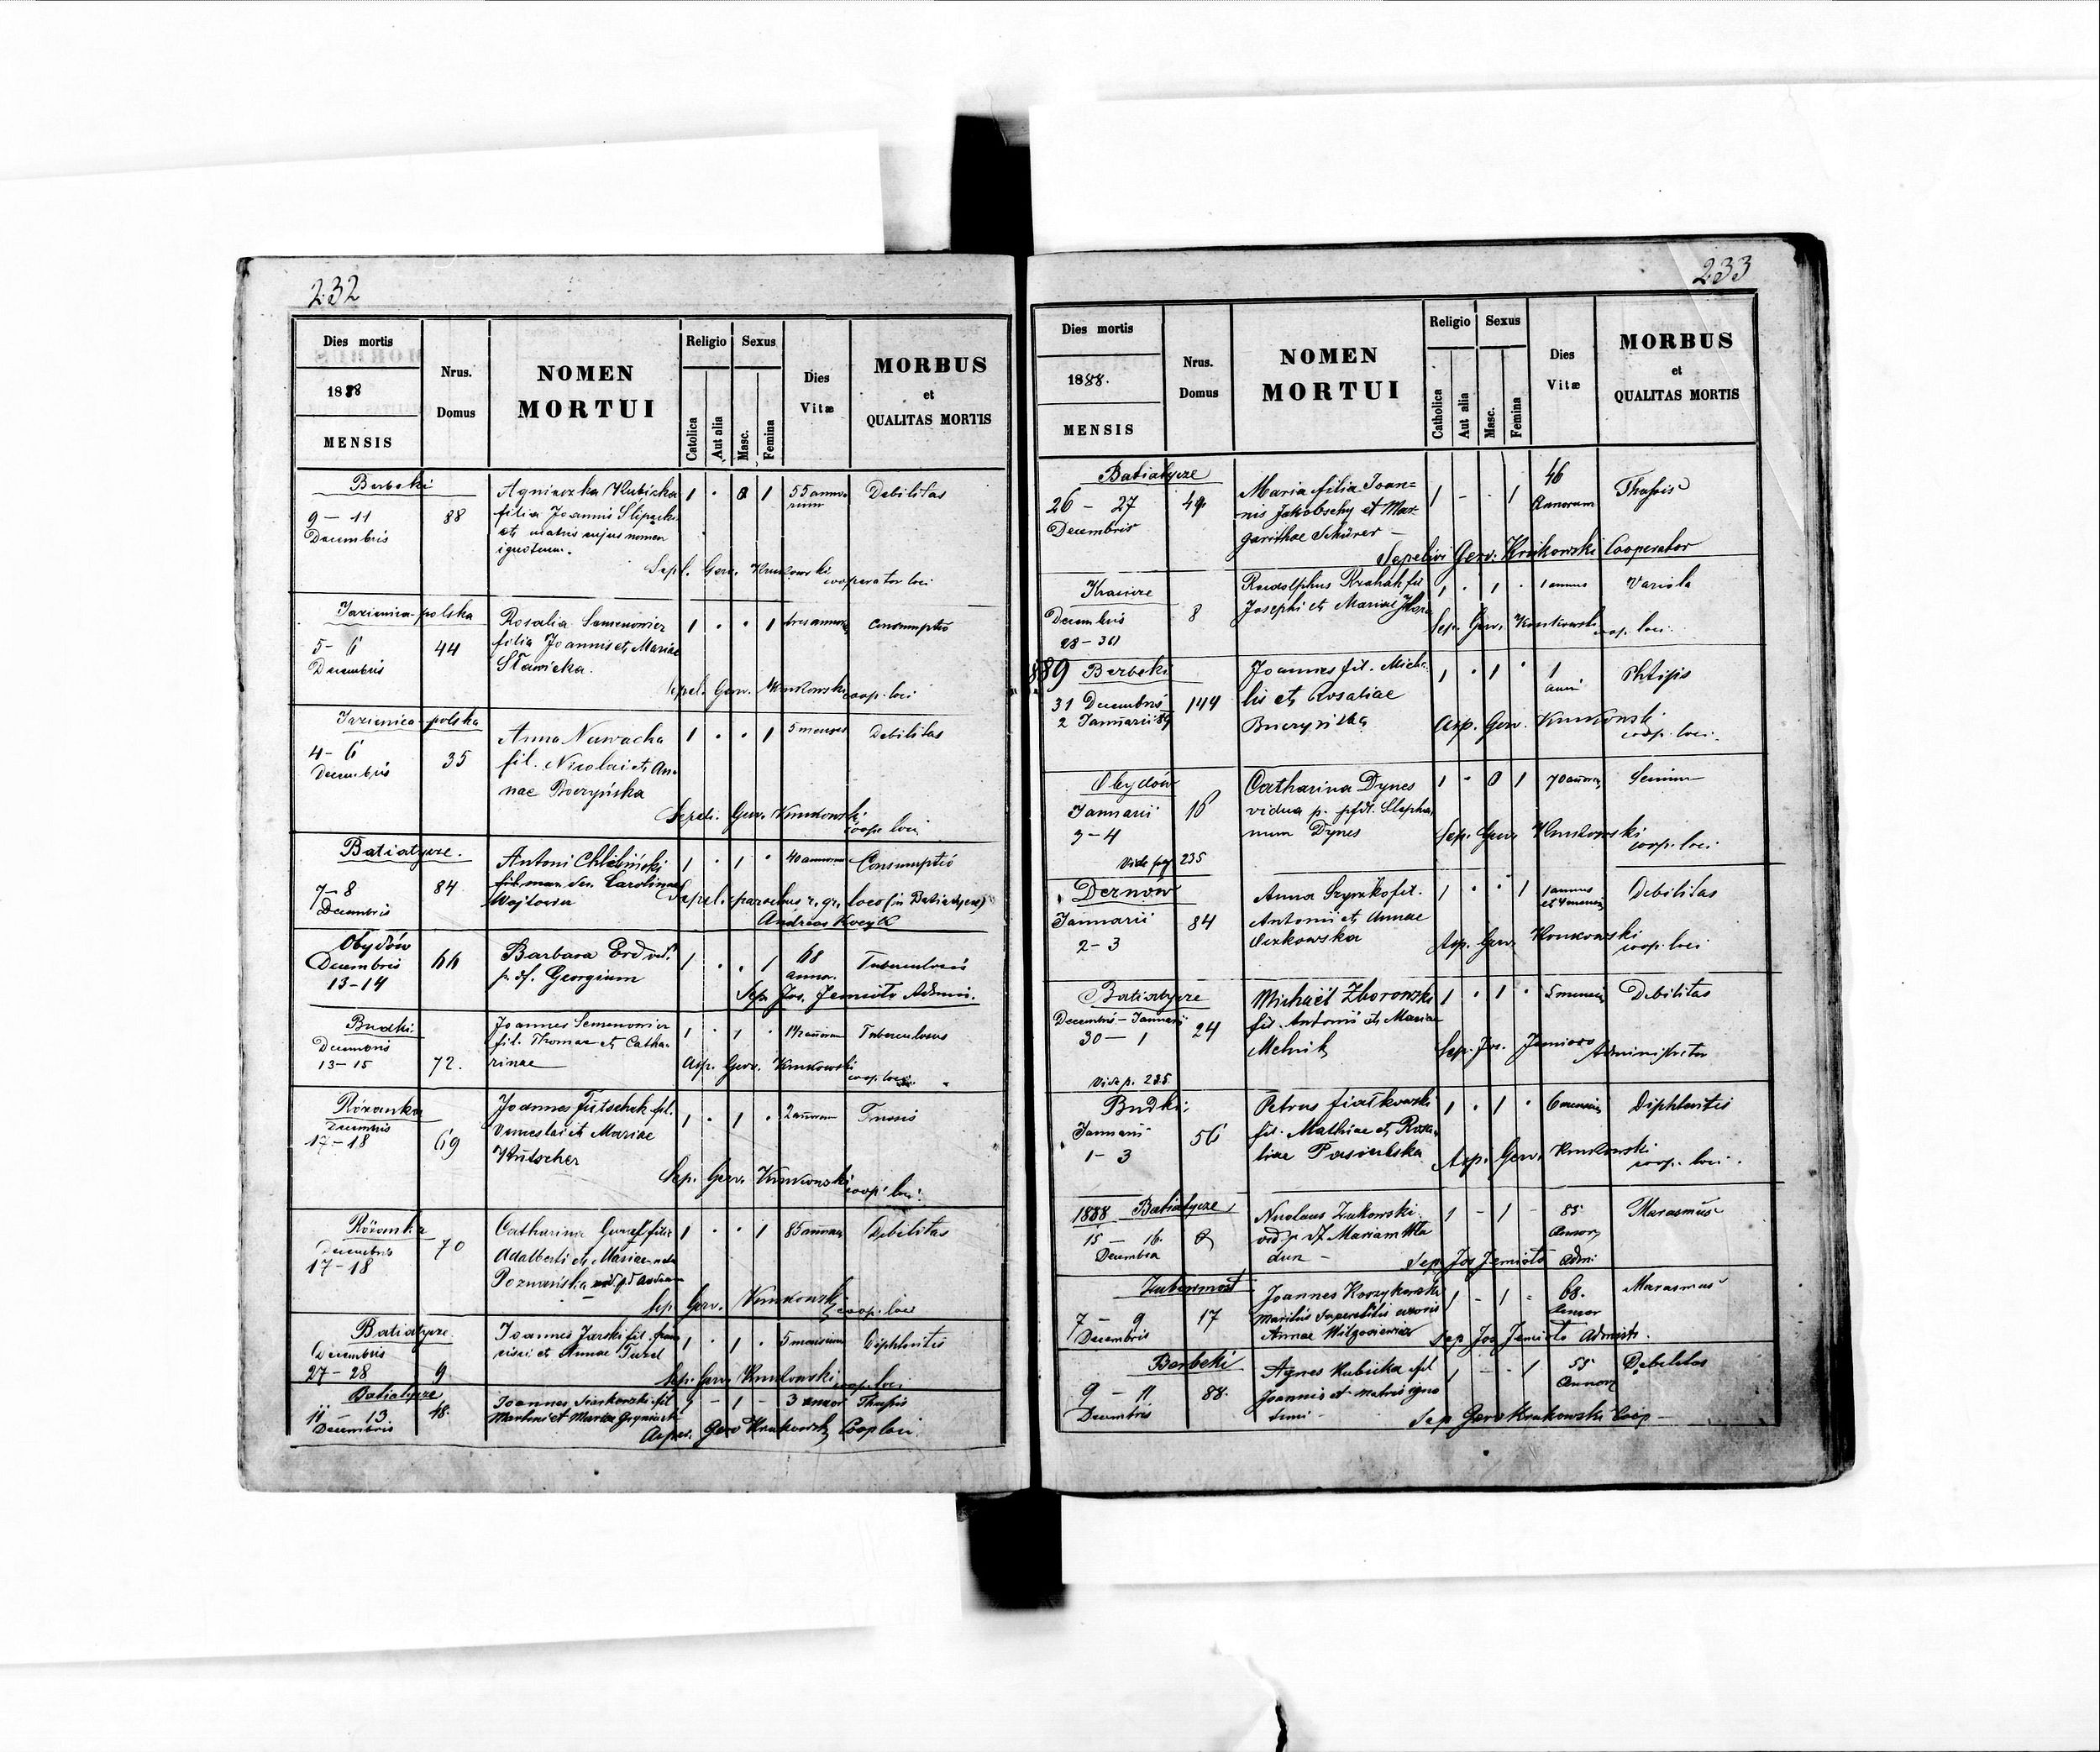 232
Dies mortis
1888
MENSIS
Nrus.
Domus
NOMEN
MORTUI
Religio
Sexus
Catolica
Aut alia
Masc.
Femina
Dies
Vitæ
MORBUS
et
QUALITAS MORTIS
Berbeki
9 - 11
Decembris
88
Agnieszka Kubicka
filia Joannis
et matris cujus nomen
ignotum.
1 . 1
55 anno-
rum
Debilitas
Sepl. Gerv. Krukowski
cooperator loci
Jazienica polska
5 - 6
Decembris
44
Rosalia Semenowicz
filia Joannis et Mariae
Sławicka.
1 . . 1
tres
consumptio
Sepel. Gerv. Krukowski coop. loci
Jazienica polska
4 - 6
Decembris
35
Anna Nawacka
fil. Nicolai et An-
nae Boczyńska
1 . . 1
5 menses
Debilitas
Sepeli. Gerv. Krukowski
coop. loci
Batiatycze.
7 - 8
Decembris
84
Antoni Chlebiński
Carolinae
1 . 1 .
40 annorum
Consumptio
Sepel. parochus r. gr. loco (in Batiatycze)
Andreas
Obydów
Decembris
13 - 14
66
Barbara Erd vid.
p. df. Georgium
1 . . 1
68
anno.
Tuberculosis
Sep. Jos. Jemioło Admin.
Budki
Decembris
13 - 15
72.
Joannes Semenowicz
fil. Thomae et Catha-
rinae
1 . 1 .
Tuberculosus
Asp. Gerv. Krukowski
coop. loci.
Rózanka
Decembris
17 - 18
69
Joannes Fütschek fil.
et Mariae
Kutscher
1 . 1 .
2 annorum
Tussis
Sep. Gerv. Krukowski
coop. loci.
Rózanka
Decembris
17 - 18
70
Catharina filia
Adalberti et Mariae
Poznańska
1 . . 1
85 annorum
Debilitas
Sep. Gerv. Krukowski
coop. loci
Batiatycze
Decembris
27 - 28
9
Joannes Jarski fil. Fran-
cisci et Annae Turel
1 . 1 .
5 mensium
Diphteritis
Sep. Gerv. Krukowski coop. loci
Batiatycze
11 - 13.
Decembris
48.
Joannes Siankowski fil
Martini et Mariae
- 1 -
3 annor
Thussis
Asper. Gerv Krukowski Coop loci.
233
Dies mortis
1888.
MENSIS
Nrus.
Domus
NOMEN
MORTUI
Religio
Sexus
Catholica
Aut alia
Masc.
Femina
Dies
Vitæ
MORBUS
et
QUALITAS MORTIS
Batiatycze
26 - 27
Decembris
49
Maria filia Joan=
nis Jakobschy et Mar-
garithae Schürer -
1 - . 1
46
Annorum
Thussis
Sepelivi Gerv. Krukowski Cooperator
Decembris
8
Rudolphus fil
Josephi et Mariae
1 . 1 .
1 annus
Variola
Sep. Gerv. Krukowski
coop. loci.
889 Berbeki
31 Decembris
2 Januarii 89
144
Joannes fil. Micha-
lis et Rosaliae
1 . 1 .
1
anni
Phtisis
Asp. Gerv. Krukowski
coop. loci.
Obydów
Januarii
3 - 4
Vide pag 235
Catharina Dynes
vidua p. pfdt. Stepha-
num Dynes
1 . 1
70 annorum
Senium
Sep. Gerv. Krukowski
coop. loci.
Dernów
Januarii
2 - 3
84
Anna Szyszko fil.
Antonii et Annae
1 . . 1
1 annus
et 4 menses
Debilitas
Asp. Gerv. Krukowski
coop. loci
Batiatycze
Decembris - Januarii
30 - 1
24
Vide p. 235.
Michaël Zborowski
fil. Antonii et Mariae
Melnik
1 . 1 .
5 mensium
Debilitas
Sep. Jos. Jemioło
Administrator
Budki
Januarii
1 - 3
56
Petrus Fiałkowski
fil. Mathiae et Rosa-
liae
1 . 1 .
6 mensium
Diphteritis
Asp. Gerv. Krukowski
coop. loci.
1888 Batiatycze
15 - 16
Decembra
Nicolaus Zukowski
vid p df Mariam
1 - 1 -
85
annor
Marasmus
Sep. Jos Jemioło Admi
7 - 9
Decembris
17
Joannes
maritus superstitis uxoris
Annae
1 - 1 -
68.
annor
Marasmus
Sep Jos Jemioło Admstr.
Berbeki
9 - 11
Decembris
88.
Agnes Kubicka fil
Joannis et matris igno
1 - - 1
55
Annor
Debilitas
Sep Gerv Krukowski Coop -